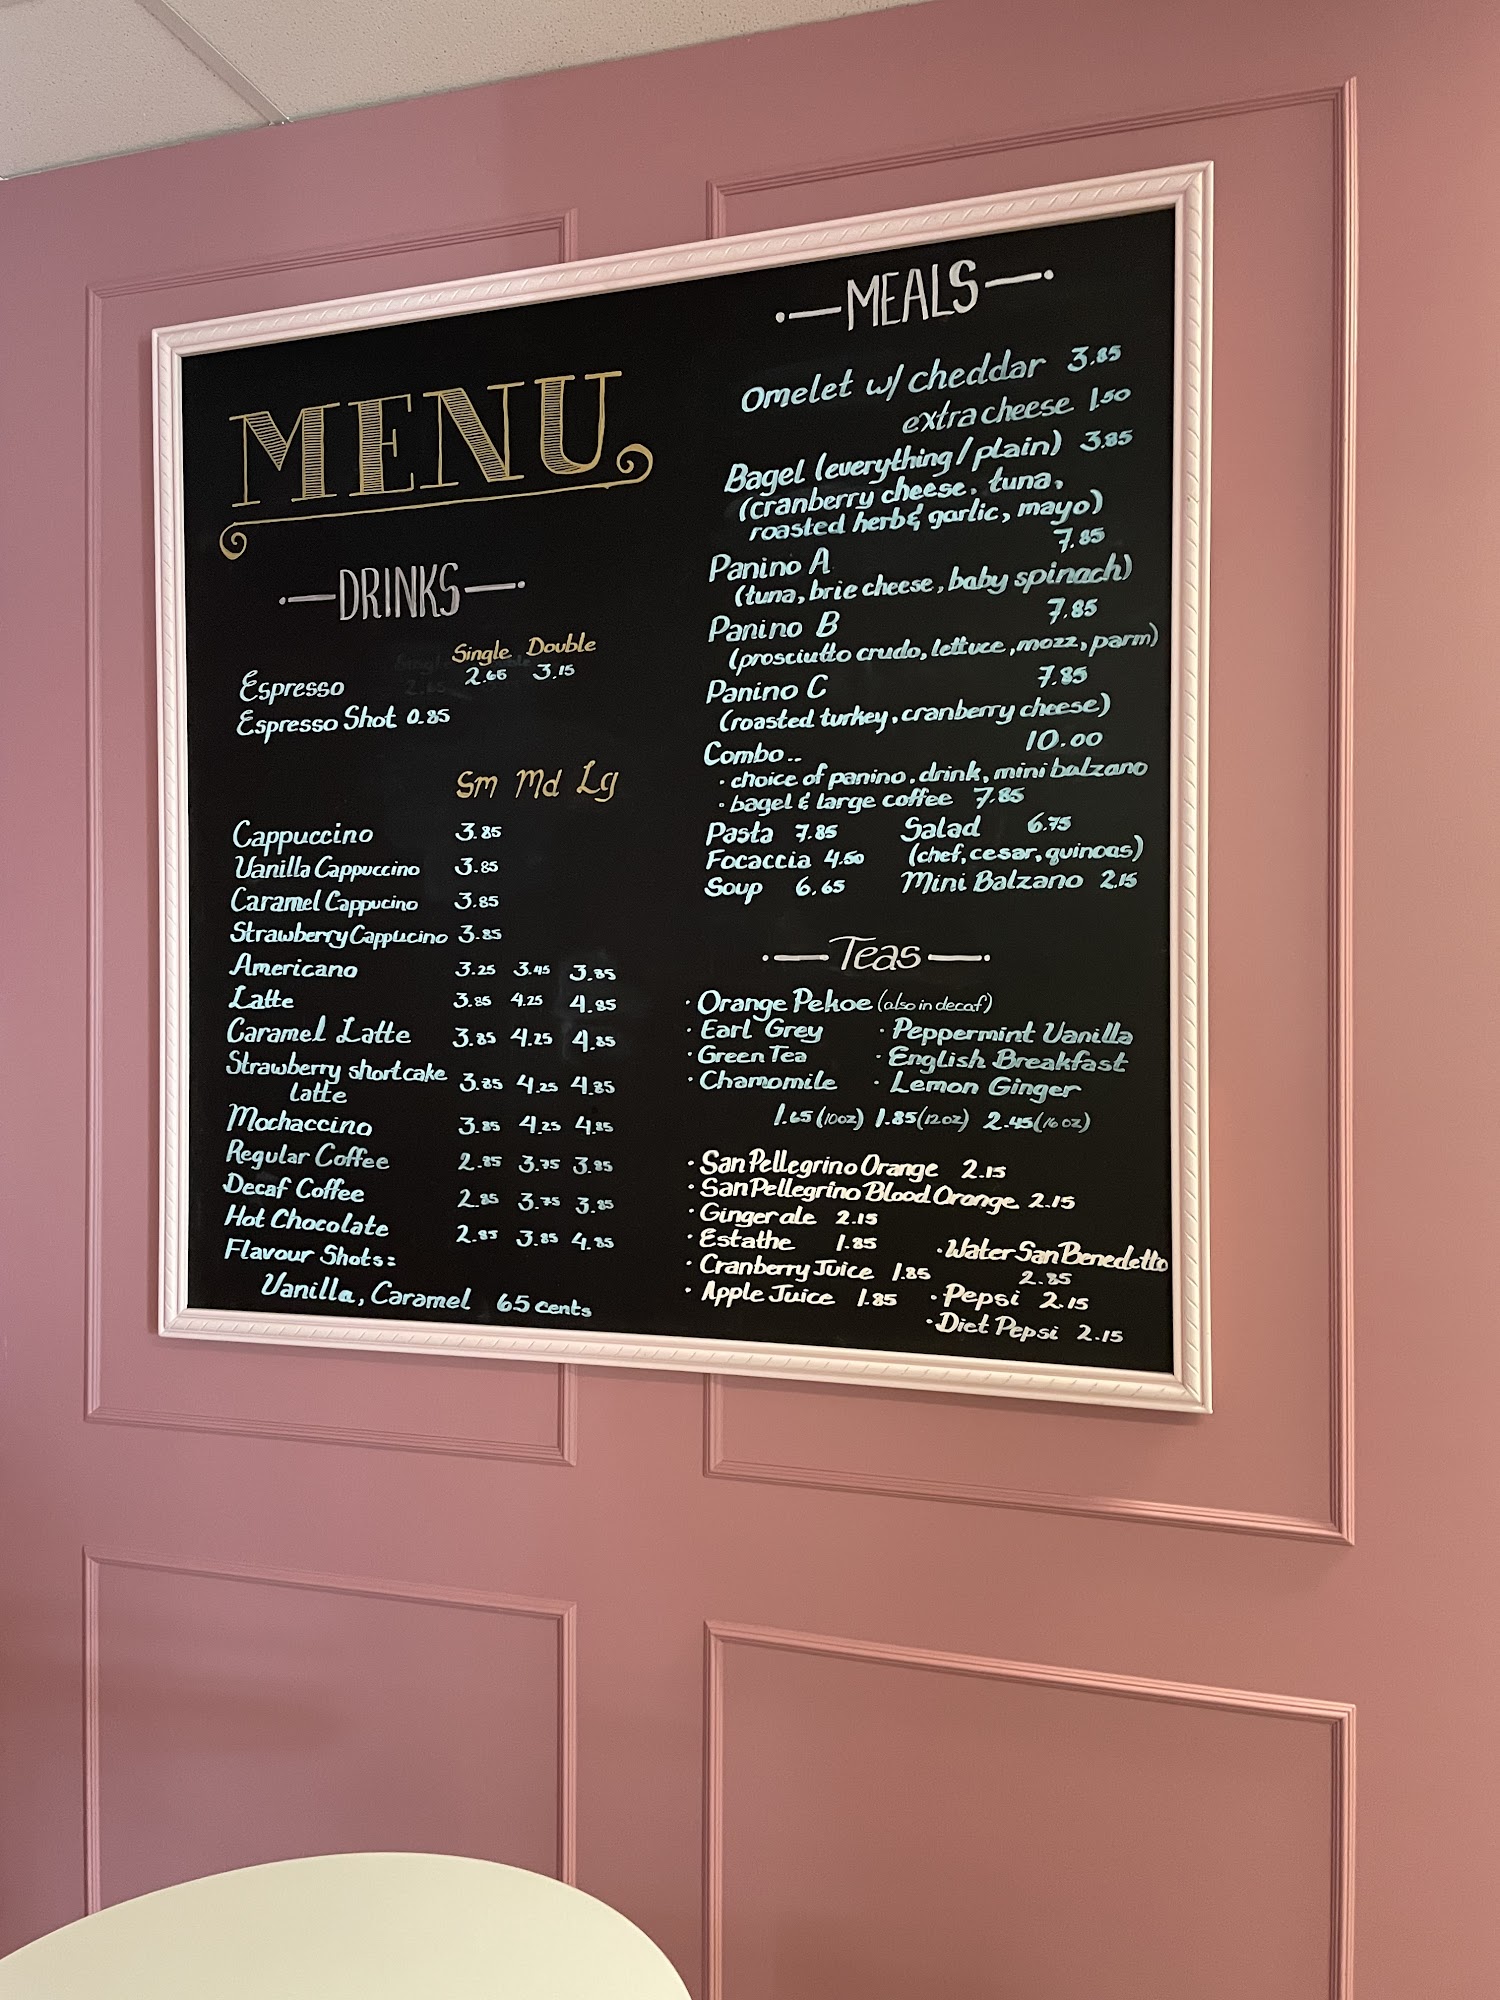 MENU
DRINKS
Single Double
Espresso 2.65 3.15
Espresso Shot 0.85
Sm Md Lg
Cappuccino 3.85
Vanilla Cappuccino 3.85
Caramel Cappucino 3.85
Strawberry Cappucino 3.85
Americano 3.25 3.45 3.85
Latte 3.85 4.25 4.85
Caramel Latte 3.85 4.25 4.85
Strawberry shortcake 3.85 4.25 4.85
latte
Mochaccino 3.85 4.25 4.85
Regular Coffee 2.85 3.75 3.85
Decaf Coffee 2.85 3.75 3.85
Hot Chocolate 2.85 3.85 4.85
Flavour Shots:
Vanilla, Caramel 65 cents
MEALS
Omelet w/ cheddar 3.85
extra cheese 1.50
Bagel (everything/plain) 3.85
(cranberry cheese, tuna,
roasted herb & garlic, mayo)
7.85
Panino A
(tuna, brie cheese, baby spinach)
7.85
Panino B
(prosciutto crudo, lettuce, mozz, parm)
7.85
Panino C
(roasted turkey, cranberry cheese)
Combo.. 10.00
· choice of panino, drink, mini balzano
· bagel & large coffee 7.85
Pasta 7.85 Salad 6.75
Focaccia 4.50 (chef, cesar, quinoas)
Soup 6.65 Mini Balzano 2.15
Teas
· Orange Pekoe (also in decaf)
· Earl Grey · Peppermint Vanilla
· Green Tea · English Breakfast
· Chamomile · Lemon Ginger
1.65 (10oz) 1.85 (12oz) 2.45 (16oz)
· San Pellegrino Orange 2.15
· San Pellegrino Blood Orange 2.15
· Ginger ale 2.15
· Estathe 1.85 · Water San Benedetto
· Cranberry Juice 1.85 2.85
· Apple Juice 1.85 · Pepsi 2.15
· Diet Pepsi 2.15